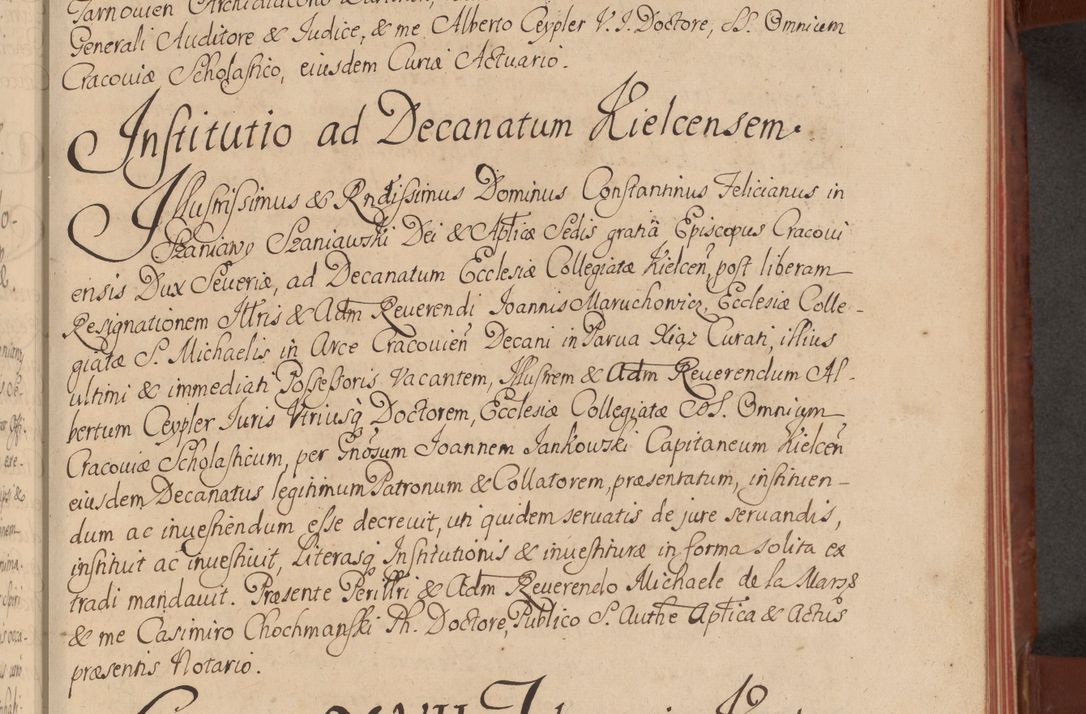 Tarnovien Archidiacono
Generali Auditore & Iudice, & me Alberto Ceypler V. I. Doctore, SS. Omnium
Cracoviæ Scholastico, eiusdem Curiæ Actuario.
Institutio ad Decanatum Kielcensem.
Illustrissimus & Rndissimus Dominus Constantinus Felicianus in
Szaniawy Szaniawski Dei & Aplicæ Sedis gratiâ Episcopus Cracovi
ensis Dux Severiæ, ad Decanatum Ecclesiæ Collegiatæ Kielcen̄, post liberam
Resignationem Illris & Adm Reverendi Ioannis Maruchowicz, Ecclesiæ Colle-
giatæ S. Michaelis in Arce Cracovien̄ Decani in Parva Xiąz Curati, illius
ultimi & immediati Possessoris vacantem, Illustrem & Adm Reverendum Al-
bertum Ceypler Iuris Utriusq Doctorem, Ecclesiæ Collegiatæ SS. Omnium
Cracoviæ Scholasticum, per Gnosum Ioannem Iankowski Capitaneum Kielcen̄
eiusdem Decanatus legitimum Patronum & Collatorem, præsentatum, instituen-
dum ac investiendum esse decrevit, uti quidem servatis de jure servandis,
instituit ac investivit, Literasq Institutionis & investituræ in forma solita ex
tradi mandavit. Præsente Perillri & Adm Reverendo Michaele de la Mars
& me Casimiro Chochmanski Ph. Doctore, Publico S. Authe Aptica & Actus
præsentis Notario.